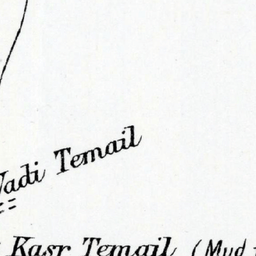 Wadi Temail
Kasr Temail (Mud